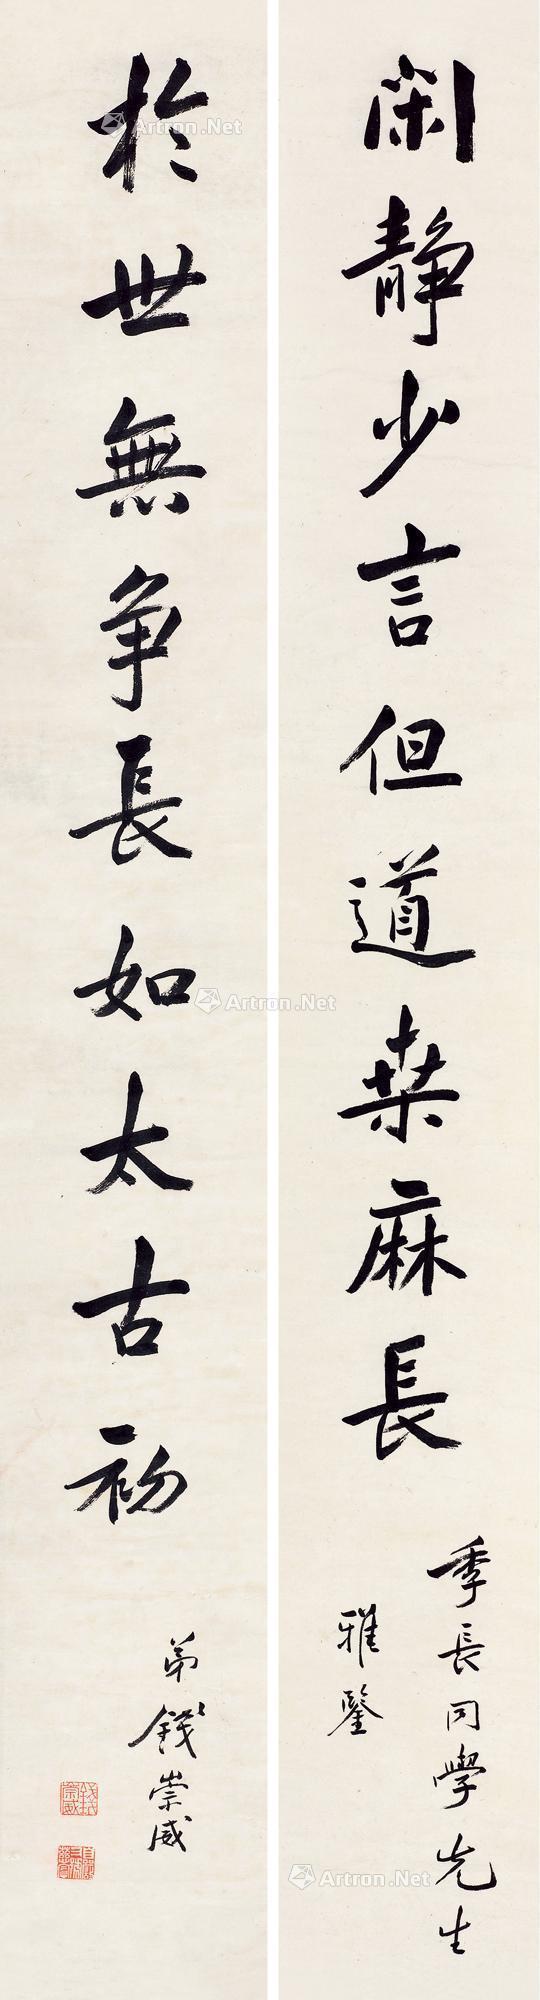 閑靜少言但道桒麻長
季長同學先生
雅鑒
於世無争長如太古初
弟錢崇威
Artron.Net
Artron.Net
Artron.Net
Artron.Net